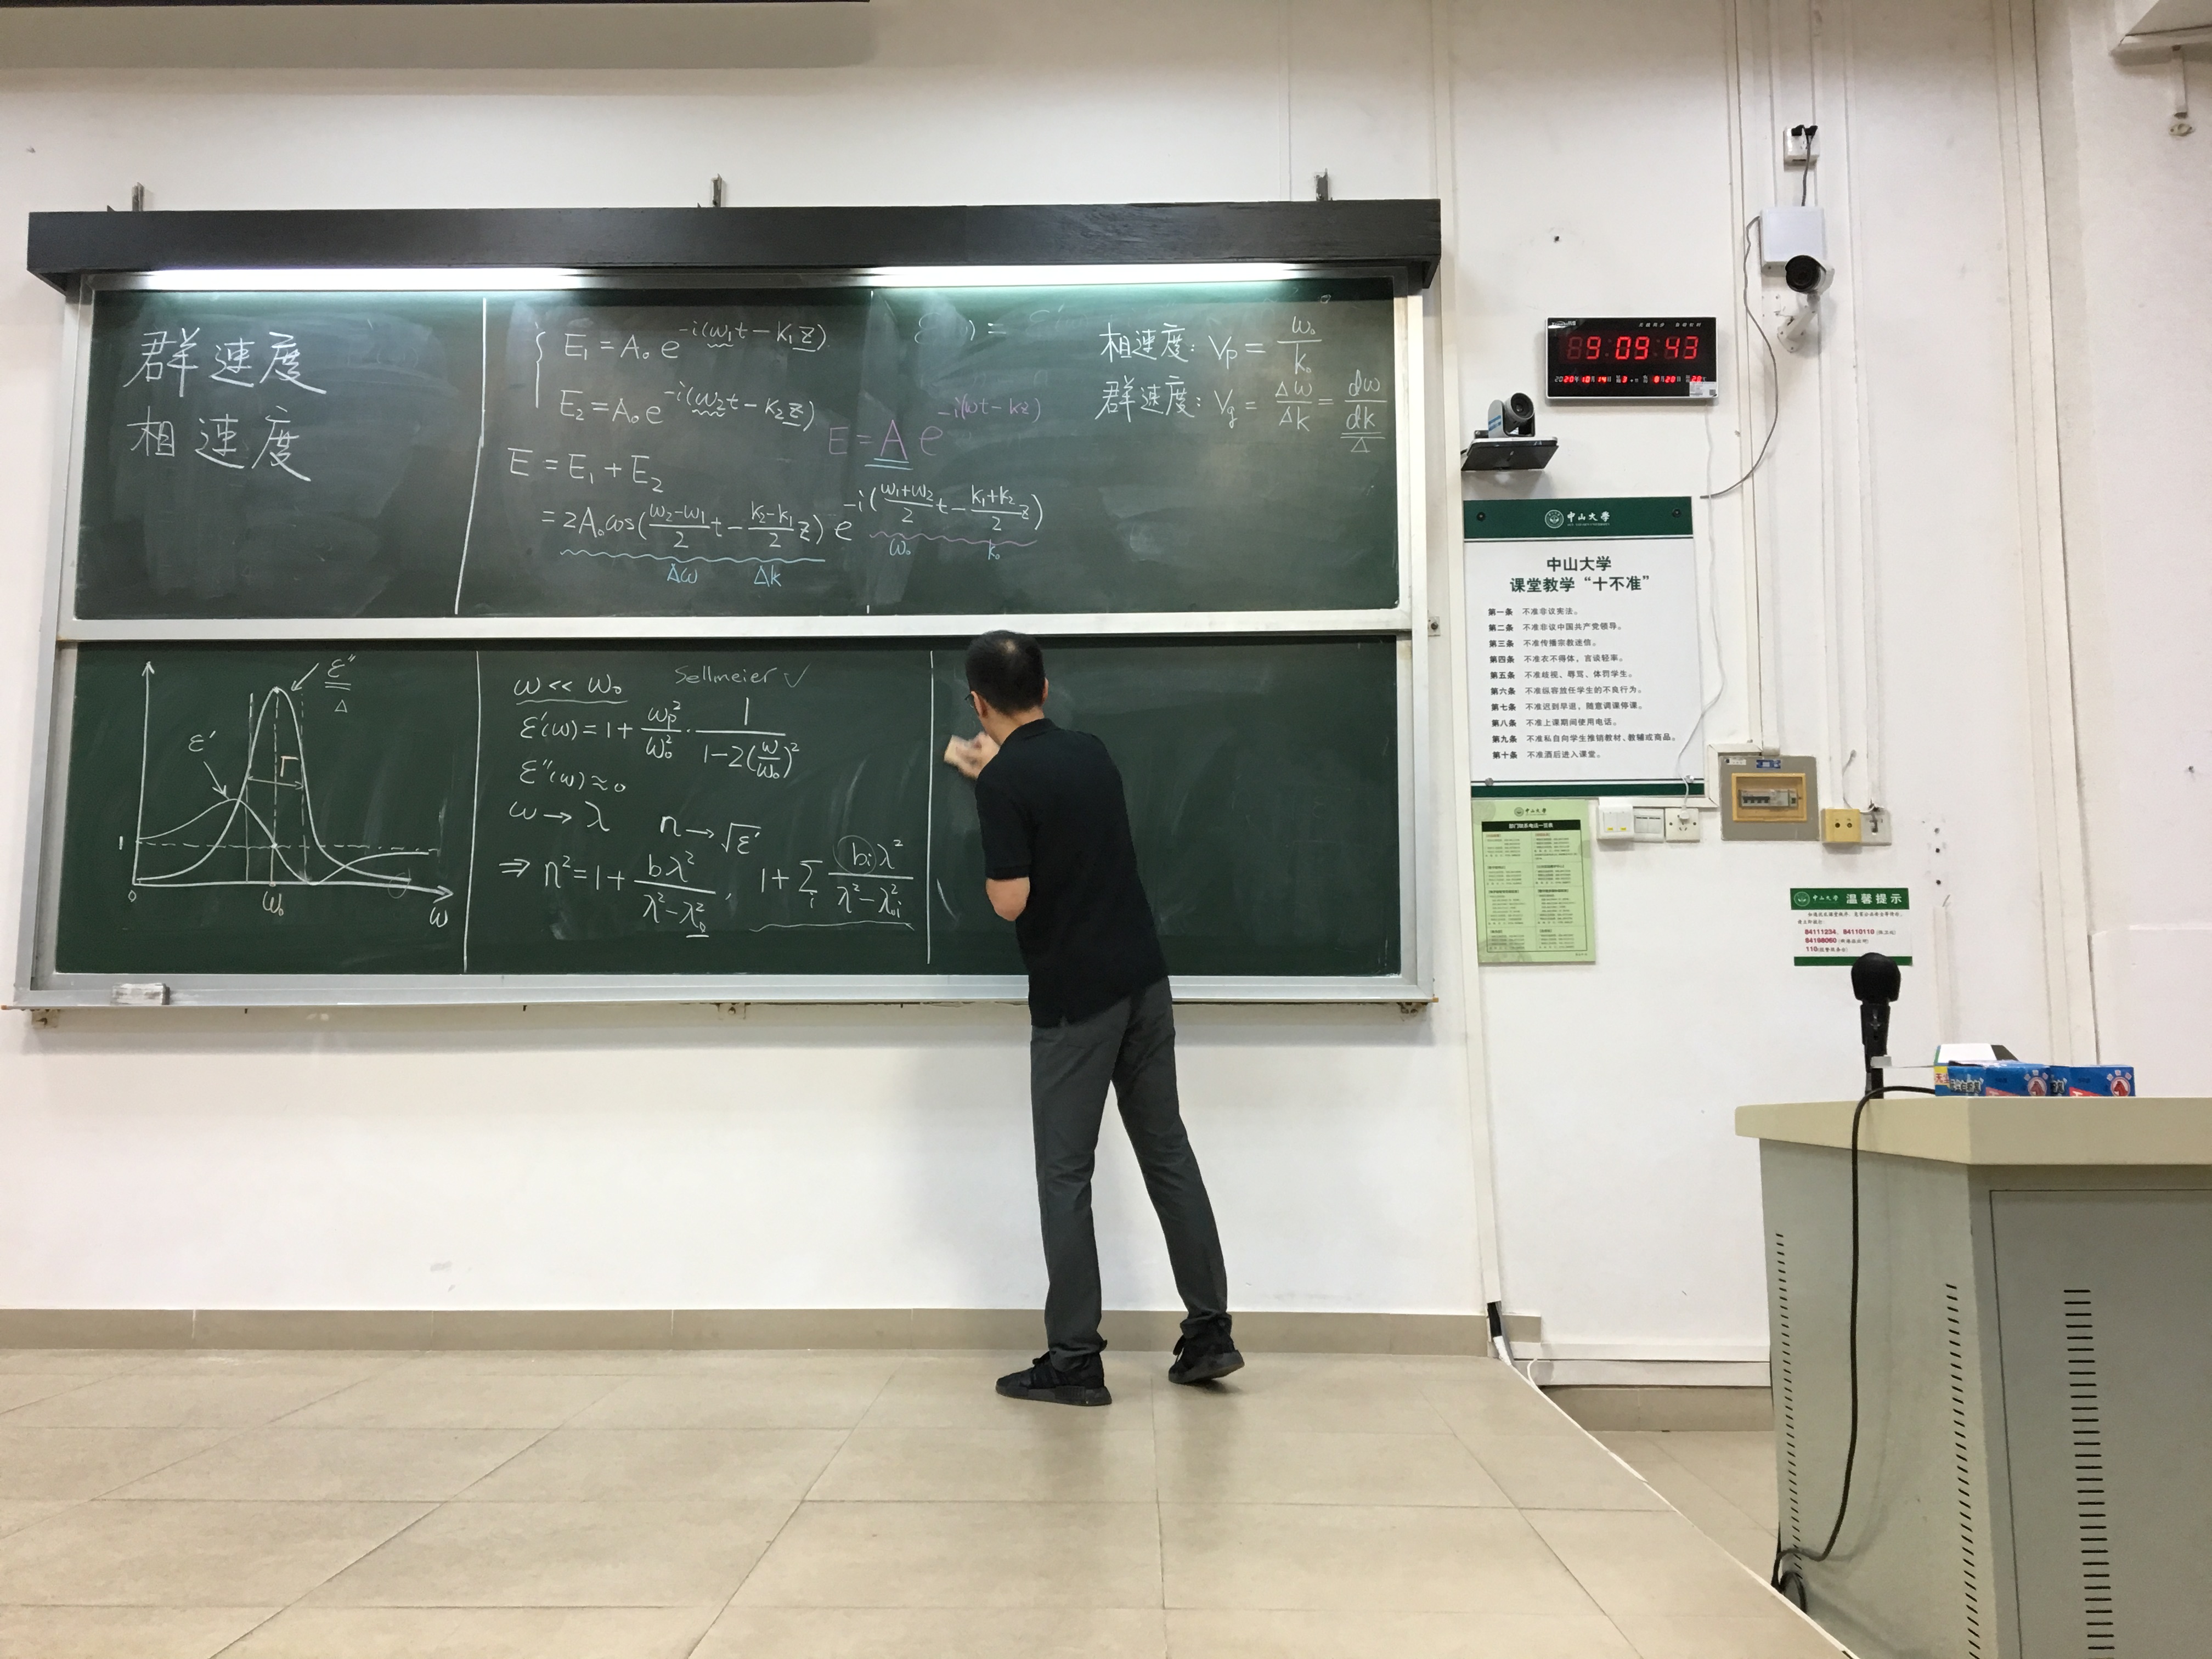 群速度
相速度
E₁ = A₀ e^{-i(ω₁t - k₁z)}
E₂ = A₀ e^{-i(ω₂t - k₂z)}
E = A e^{-i(ωt - kz)}
E = E₁ + E₂
= 2A₀ cos(\frac{ω₂-ω₁}{2}t - \frac{k₂-k₁}{2}z) e^{-i(\frac{ω₁+ω₂}{2}t - \frac{k₁+k₂}{2}z)}
Δω Δk ω₀ k₀
相速度: Vp = \frac{ω₀}{k₀}
群速度: Vg = \frac{Δω}{Δk} = \frac{dω}{dk}
Δ
ε''
Δ
ε'
Γ
1
0
ω₀
ω
ω << ω₀
Sellmeier ✓
ε'(ω) = 1 + \frac{ωp²}{ω₀²} · \frac{1}{1-2(\frac{ω}{ω₀})²}
ε''(ω) ≈ 0
ω → λ n → √ε'
⇒ n² = 1 + \frac{bλ²}{λ²-λ₀²}, 1 + Σᵢ \frac{bᵢλ²}{λ²-λ₀ᵢ²}
9:09:43
2020年10月14日
中山大学
中山大学
课堂教学“十不准”
第一条 不准非议宪法。
第二条 不准非议中国共产党领导。
第三条 不准传播宗教迷信。
第四条 不准衣不得体，言谈轻率。
第五条 不准歧视、辱骂、体罚学生。
第六条 不准纵容放任学生的不良行为。
第七条 不准迟到早退，随意调课停课。
第八条 不准上课期间使用电话。
第九条 不准私自向学生推销教材、教辅或商品。
第十条 不准酒后进入课堂。
中山大学
部门联系电话一览表
中山大学 温馨提示
84111234、84110110
84198060
110